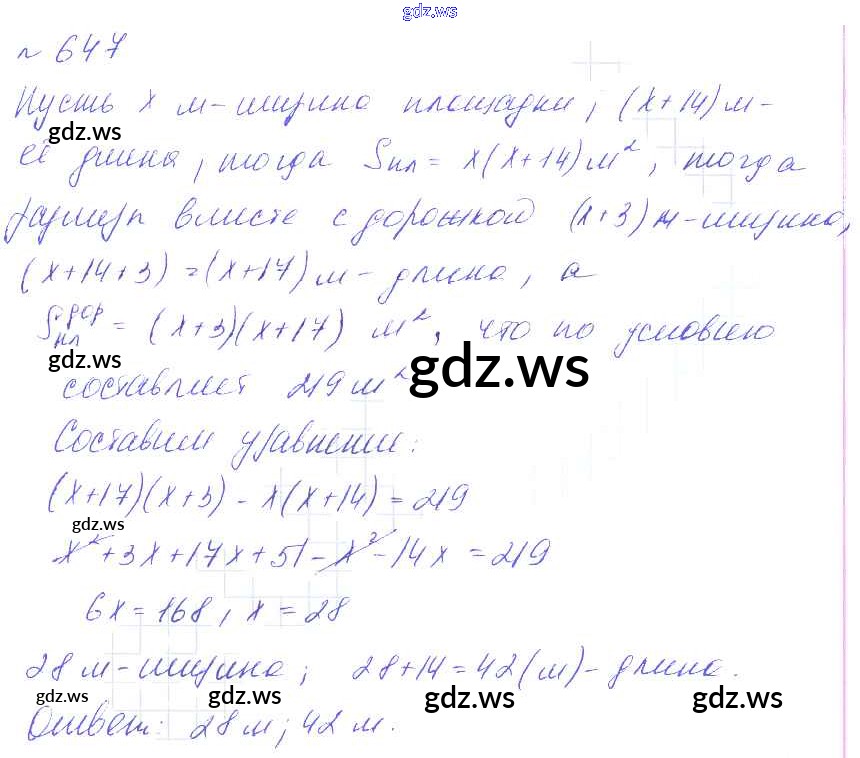 gdz.ws
№ 647
Пусть x м - ширина площадки, (x+14) м -
gdz.ws
её длина, тогда Sпл = x(x+14) м², тогда
размер вместе с дорожкой (x+3) м - ширина,
(x+14+3) = (x+17) м - длина, а
Sпл дор = (x+3)(x+17) м², что по условию
gdz.ws
gdz.ws
составляет 219 м²
Составим уравнение:
(x+17)(x+3) - x(x+14) = 219
gdz.ws
x² + 3x + 17x + 51 - x² - 14x = 219
6x = 168, x = 28
28 м - ширина; 28+14 = 42 (м) - длина.
gdz.ws gdz.ws gdz.ws gdz.ws
Ответ: 28 м; 42 м.